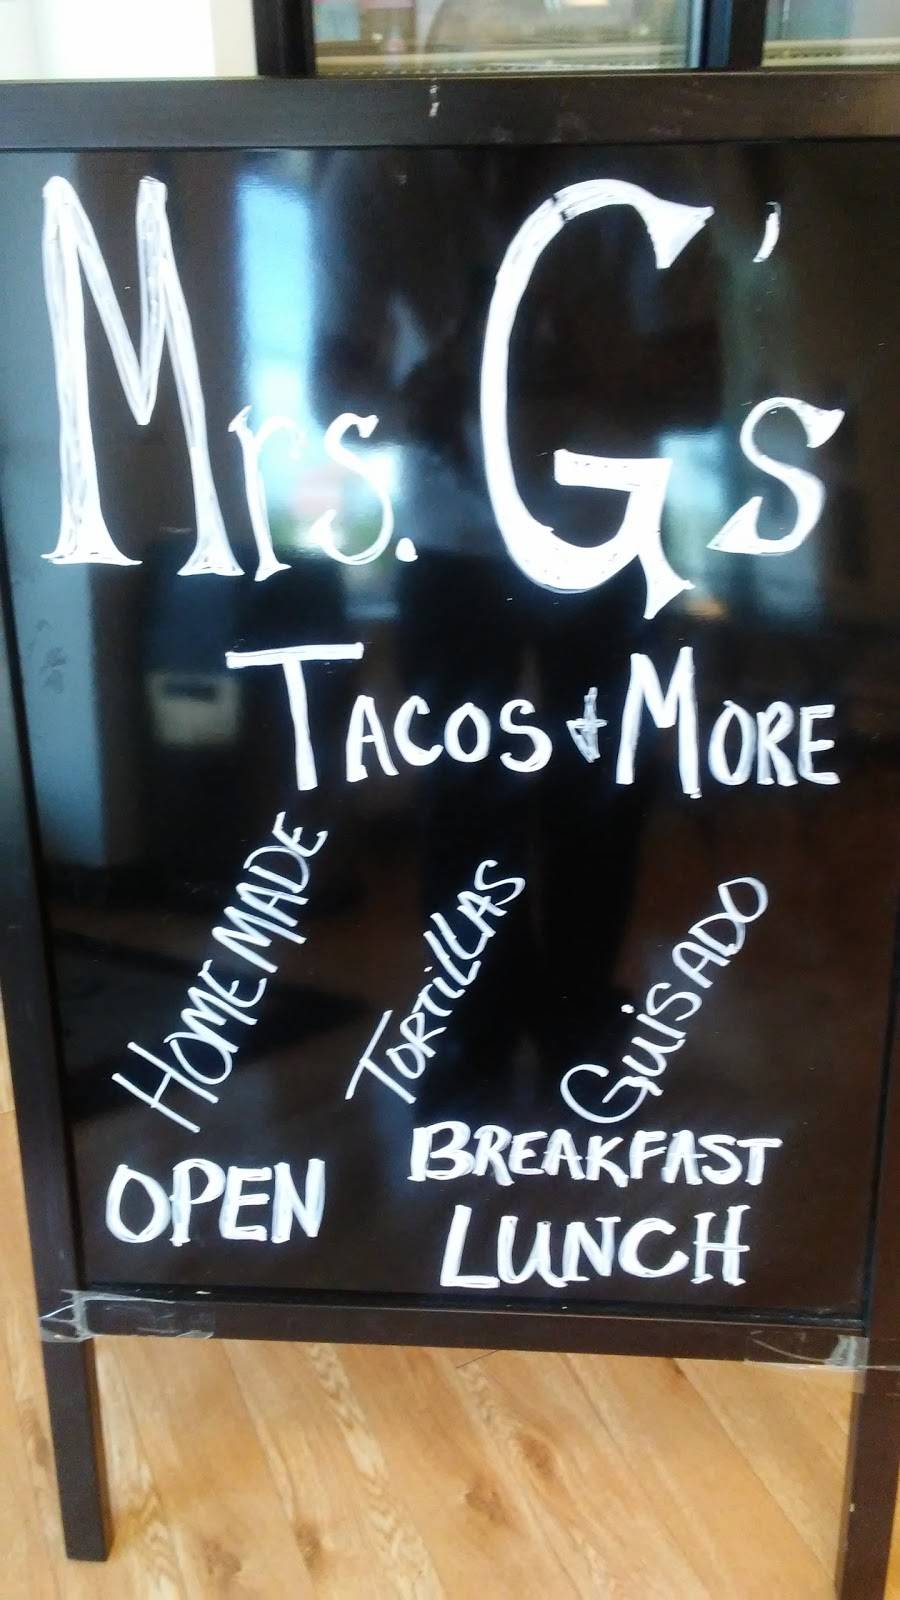 Mrs. G's
TACOS & MORE
HOMEMADE
TORTiLLAS
GUiSADO
OPEN
BREAKFAST
LUNCH